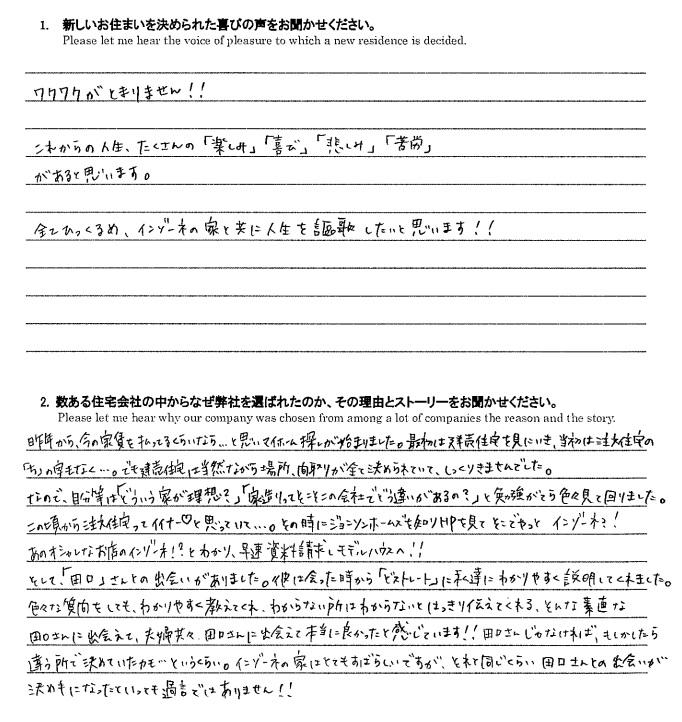 1. 新しいお住まいを決められた喜びの声をお聞かせください。
Please let me hear the voice of pleasure to which a new residence is decided.
ワクワクがとまりません!!
これからの人生、たくさんの「楽しみ」「喜び」「悲しみ」「苦労」
があると思います。
全てひっくるめ、インゾーネの家と共に人生を謳歌したいと思います!!
2. 数ある住宅会社の中からなぜ弊社を選ばれたのか、その理由とストーリーをお聞かせください。
Please let me hear why our company was chosen from among a lot of companies the reason and the story.
昨年から、今の家賃を払ってるくらいなら…と思いマイホーム探しが始まりました。最初は建売住宅を見にいき、当初は注文住宅の
「ち」の字もなく…。でも建売住宅は当然ながら場所、間取りが全て決められていて、しっくりきませんでした。
なので、自分等は「どういう家が理想?」「家造りってどことどこの会社でどう違いがあるの?」と勉強がてら色々見て回りました。
この頃から注文住宅ってイイナ~♡と思っていて…。その時にジョンソンホームズを知りHPを見てそこでやっと インゾーネ?!
あのオシャレなお店のインゾーネ!?とわかり、早速資料請求しモデルハウスへ!!
そして、「田口」さんとの出会いがありました。他は会った時から「どストレート」に私達にわかりやすく説明してくれました。
色々な質問をしても、わかりやすく教えてくれ、わからない所はわからないとはっきり伝えてくれる、そんな素直な
田口さんに出会えて、夫婦共々、田口さんに出会えて本当に良かったと感じています!!田口さんじゃなければ、もしかしたら
違う所で決めていたカモ…というくらい。インゾーネの家はとてもすばらしいですが、それと同じくらい 田口さんとの出会いが
決め手になったといっても過言ではありません!!